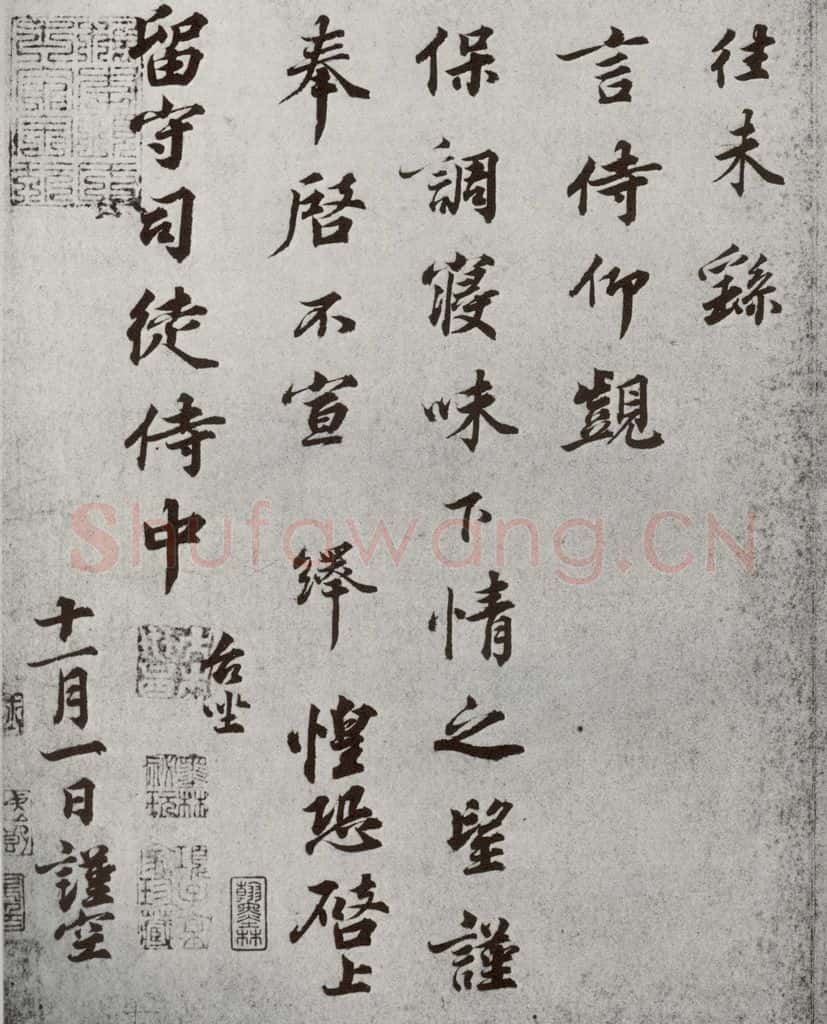 往未繇
言侍仰觊
保調寢味下情之望謹
奉啓不宣 繹惶恐啓上
留守司徒侍中
台坐
十一月一日謹空
翰墨林
Shufawang.CN